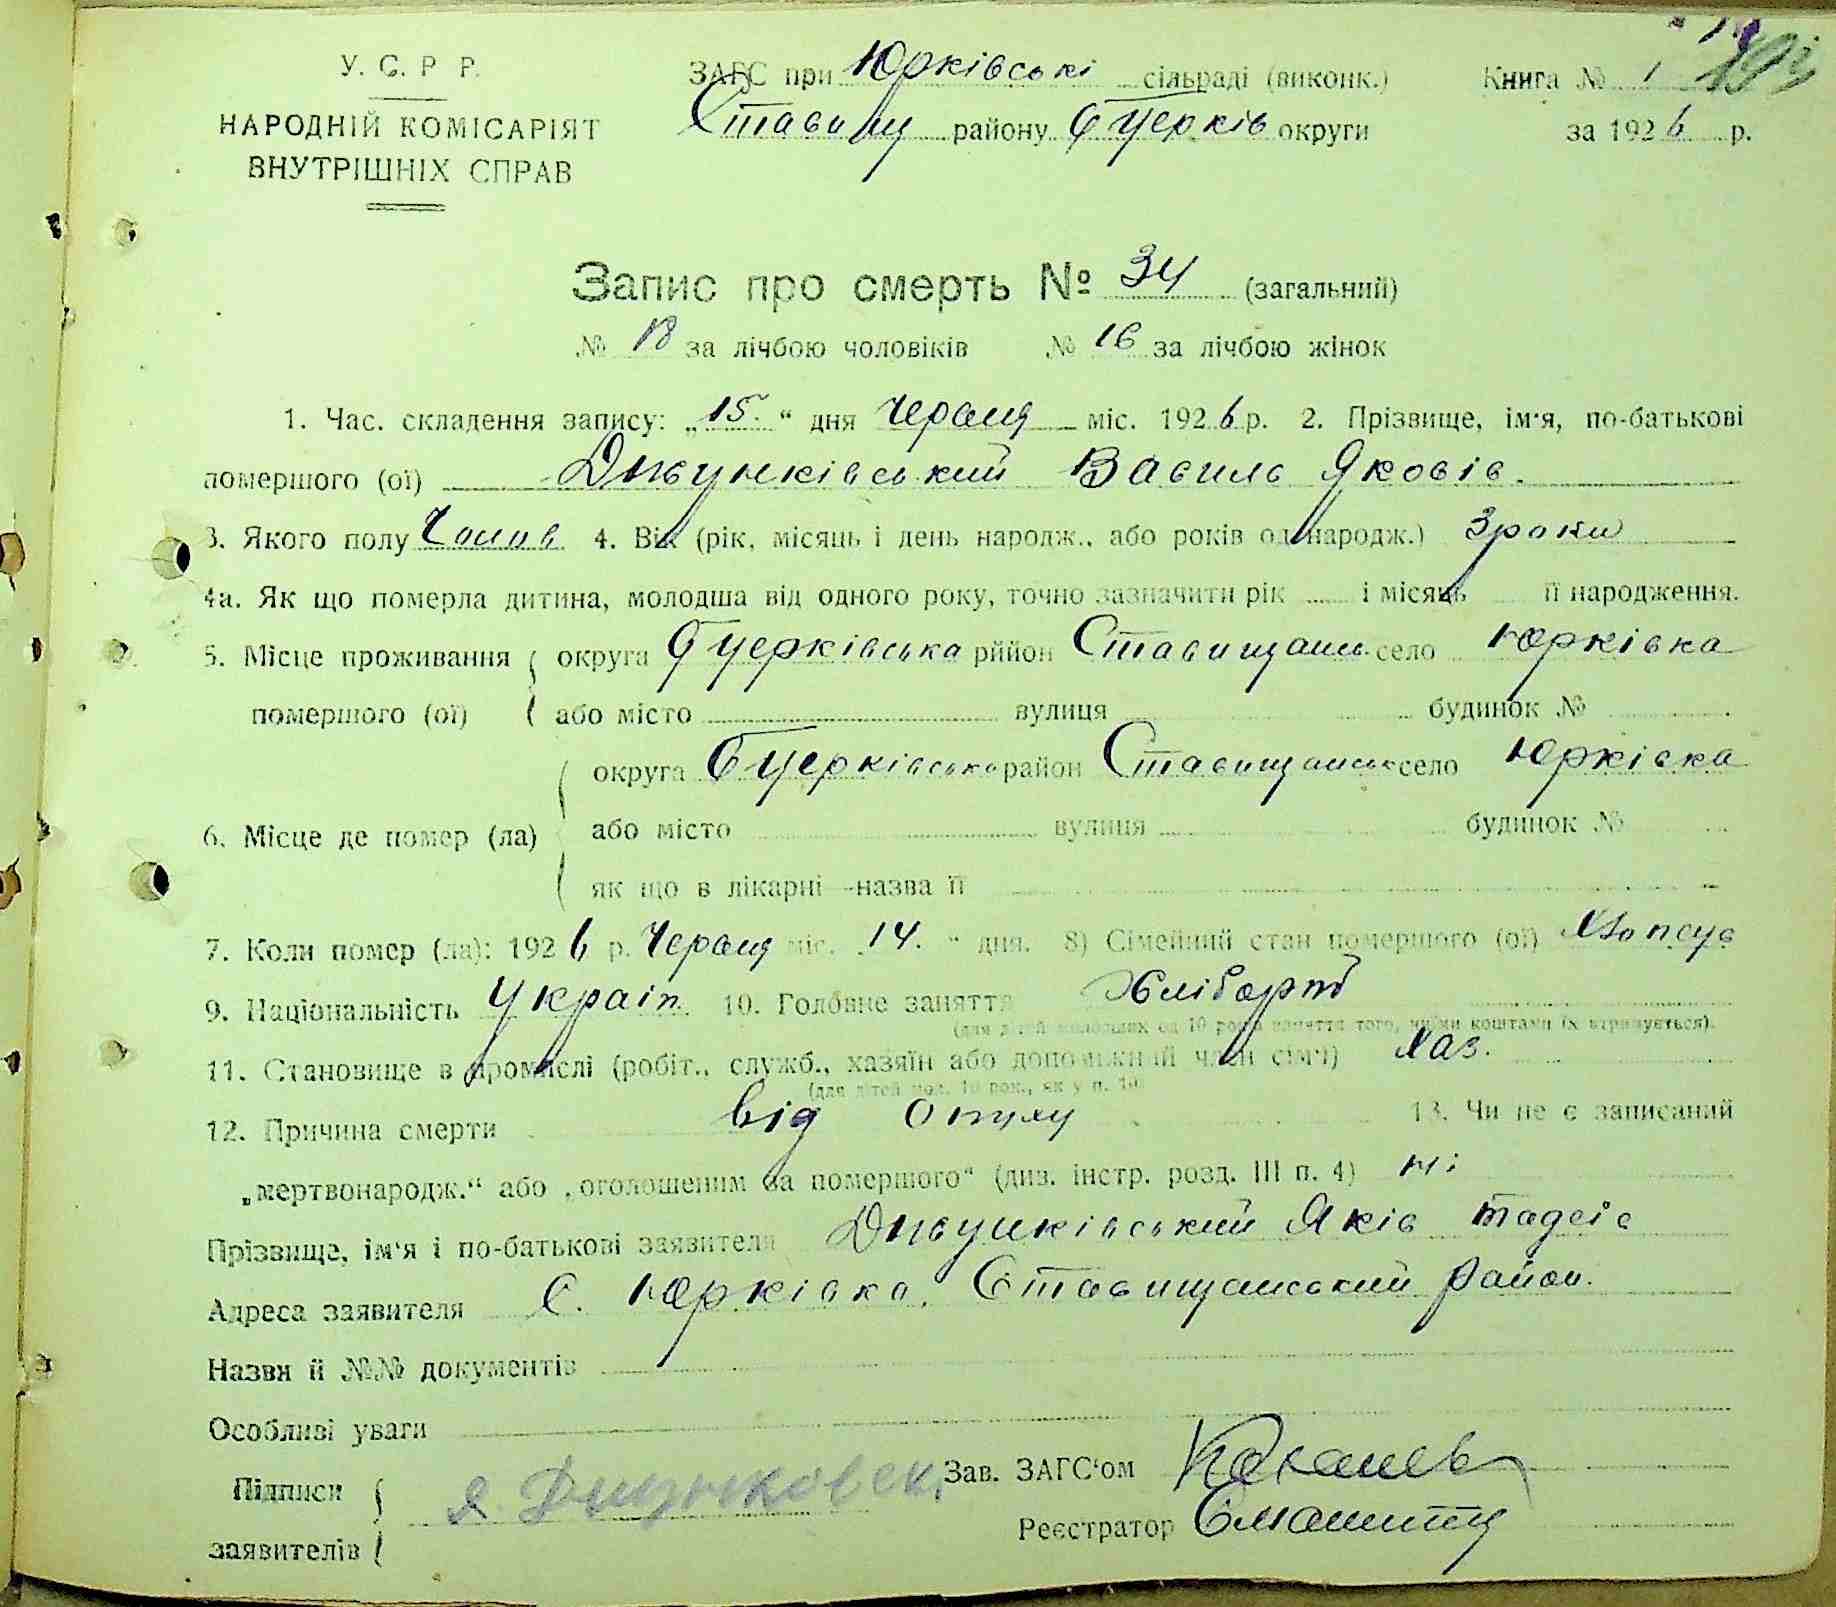 У. С. Р Р.
НАРОДНІЙ КОМІСАРІЯТ
ВНУТРІШНІХ СПРАВ
ЗАГС при Юрківські сільраді (виконк.) Книга № 1
Ставищ району Бцерків округи за 1926 р.
Запис про смерть № 34 (загальний)
№ 18 за лічбою чоловіків № 16 за лічбою жінок
1. Час. складення запису: „15." дня Червця міс. 1926 р. 2. Прізвище, ім'я, по-батькові
помершого (ої) Василь Яковів.
3. Якого полу Чолов 4. Вік (рік, місяць і день народж., або років од народж.) 3 роки
4а. Як що померла дитина, молодша від одного року, точно зазначити рік і місяць її народження.
5. Місце проживання округа Бцерківська рййон Ставищанс. село Юрківка
помершого (ої) або місто вулиця будинок №
округа Бцерківська район Ставищанськ село Юрківка
6. Місце де помер (ла) або місто вулиця будинок №
як що в лікарні—назва її
7. Коли помер (ла): 1926 р. Червця міс. 14. " дня. 8) Сімейний стан помершого (ої)
9. Національність Україн. 10. Головне заняття Хлібороб
(для дітей молодших од 10 років заняття того, чиїми коштами їх втримується).
11. Становище в промислі (робіт., служб., хазяїн або допоміжний член сім'ї) Хаз.
(для дітей мол. 10 рок., як у п. 10)
12. Причина смерти від 13. Чи не є записаний
„мертвонародж." або „оголошеним за помершого" (див. інстр. розд. III п. 4) ні
Прізвище, ім'я і по-батькові заявителя Яків Тадеів
Адреса заявителя С. Юрківка, Ставищанський район.
Назви й №№ документів
Особливі уваги
Підписи
заявителів
Зав. ЗАГС'ом
Реєстратор